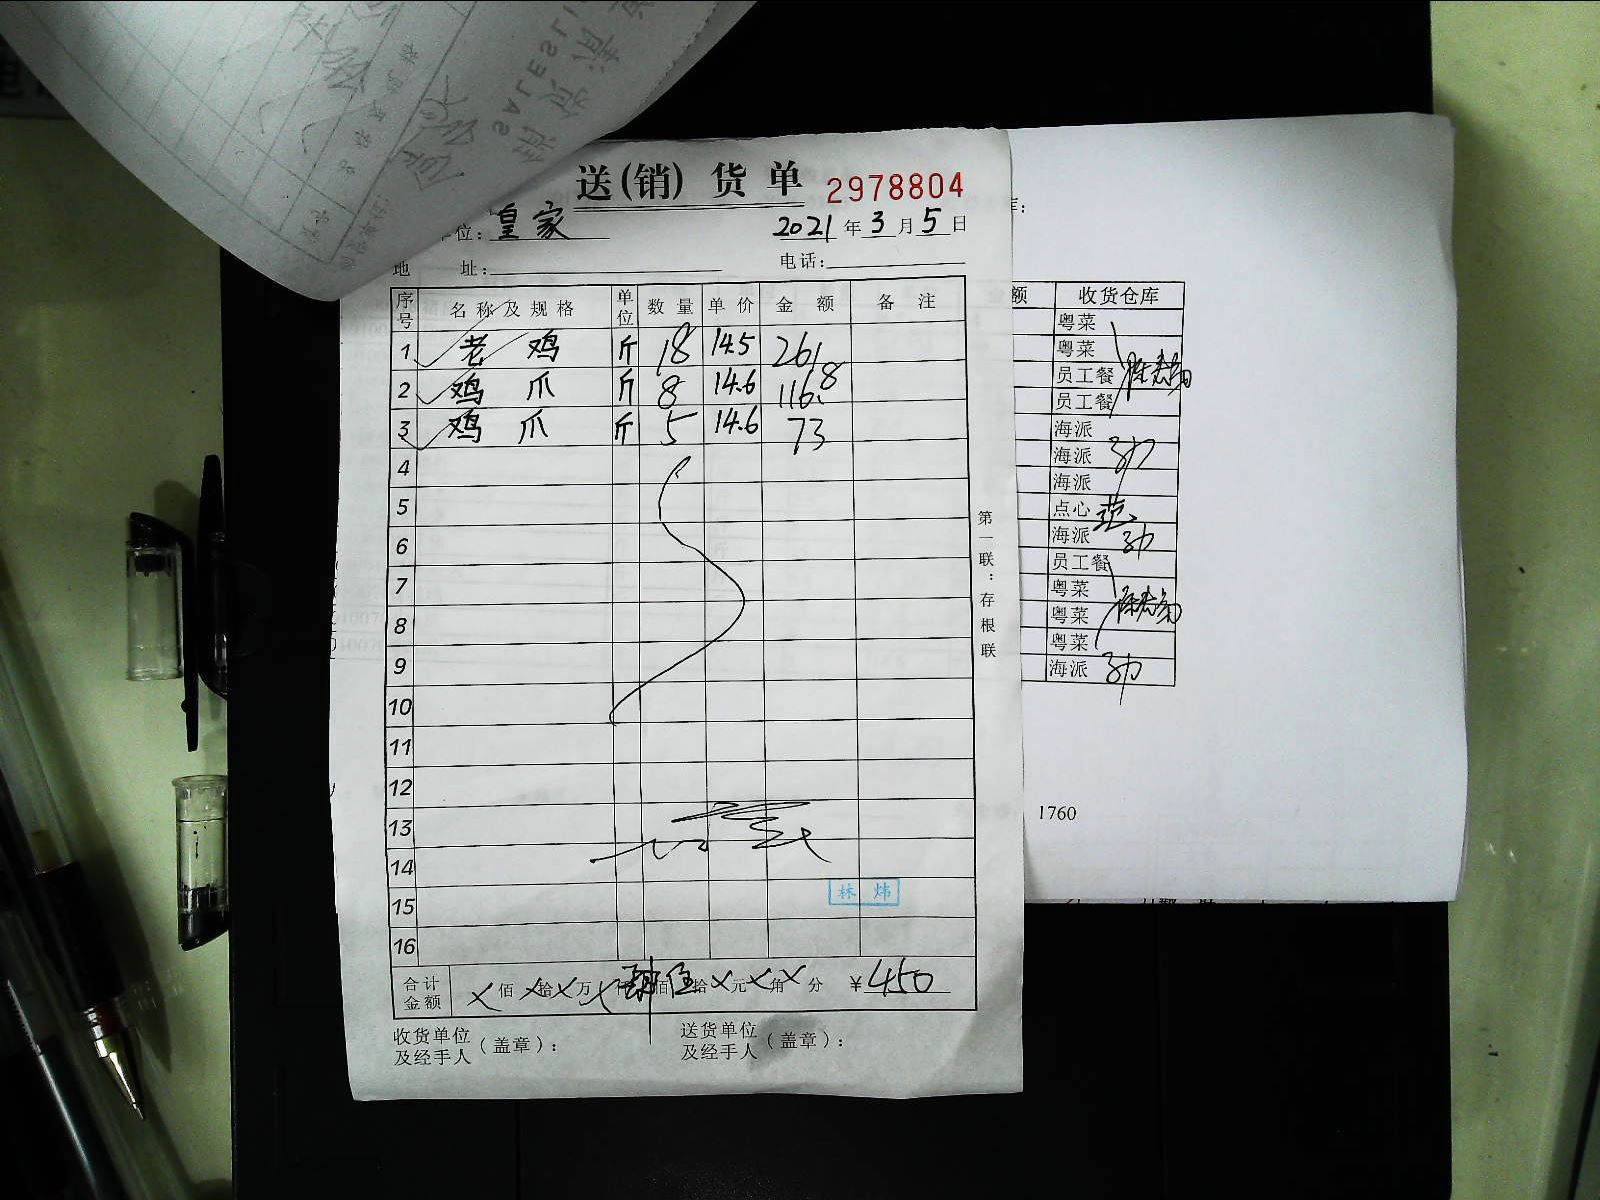 送(销)货单 2978804
位: 皇家 2021年3月5日
地 址: 电话:
序号 名称及规格 单位 数量 单价 金额 备注
1 老鸡 斤 18 14.5 261
2 鸡爪 斤 8 14.6 116.8
3 鸡爪 斤 5 14.6 73
4
5
6
7
8
9
10
11
12
13
14
15
16
林炜
合计金额 佰 拾 万 佰 伍 拾 元 角 分 ¥450
收货单位及经手人(盖章): 送货单位及经手人(盖章):
第一联:存根联
SALESLI
库:
额 收货仓库
粤菜
粤菜
员工餐
员工餐
海派
海派
海派
点心
海派
员工餐
粤菜
粤菜
粤菜
海派
1760